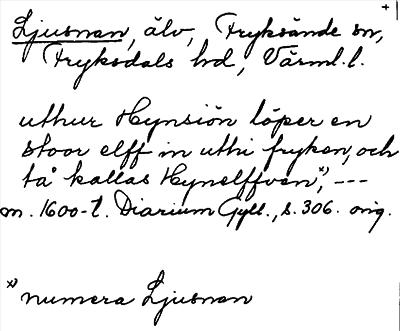 Ljusnan, älv, Fryksände sn,
Fryksdals hd, Värml. l.
uthur Hynsiön löper en
stoor elff in uthi fryken, och
tå kallas Hynelffven*), ---
m. 1600-t. Diarium Gyll., s. 306. orig.
*) numera Ljusnan